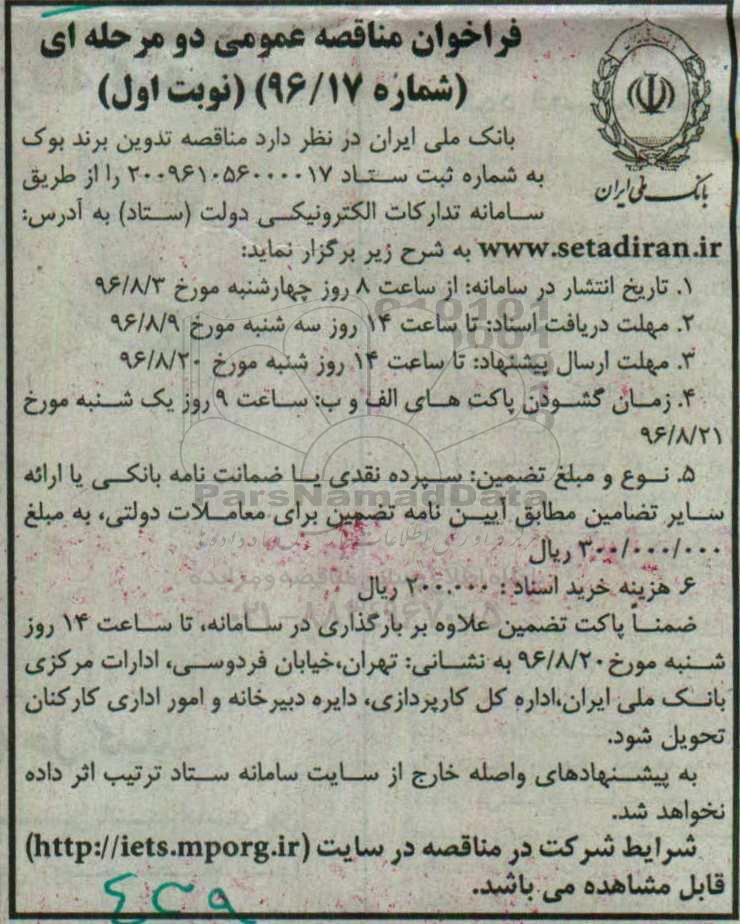 فراخوان مناقصه عمومی دو مرحله ای
(شماره ۹۶/۱۷) (نوبت اول)
بانک ملی ایران
بانک ملی ایران در نظر دارد مناقصه تدوین برند بوک
به شماره ثبت ستاد ۲۰۰۹۶۱۰۵۶۰۰۰۰۱۷ را از طریق
سامانه تدارکات الکترونیکی دولت (ستاد) به آدرس:
www.setadiran.ir به شرح زیر برگزار نماید:
۱. تاریخ انتشار در سامانه: از ساعت ۸ روز چهارشنبه مورخ ۹۶/۸/۳
۲. مهلت دریافت اسناد: تا ساعت ۱۴ روز سه شنبه مورخ ۹۶/۸/۹
۳. مهلت ارسال پیشنهاد: تا ساعت ۱۴ روز شنبه مورخ ۹۶/۸/۲۰
۴. زمان گشودن پاکت های الف و ب: ساعت ۹ روز یک شنبه مورخ
۹۶/۸/۲۱
۵. نوع و مبلغ تضمین: سپرده نقدی یا ضمانت نامه بانکی یا ارائه
ParsNamadData
سایر تضامین مطابق آیین نامه تضمین برای معاملات دولتی، به مبلغ
۳۰۰/۰۰۰/۰۰۰ ریال
۶. هزینه خرید اسناد : ۲۰۰.۰۰۰ ریال
ضمناً پاکت تضمین علاوه بر بارگذاری در سامانه، تا ساعت ۱۴ روز
شنبه مورخ ۹۶/۸/۲۰ به نشانی: تهران،خیابان فردوسی، ادارات مرکزی
بانک ملی ایران،اداره کل کارپردازی، دایره دبیرخانه و امور اداری کارکنان
تحویل شود.
به پیشنهادهای واصله خارج از سایت سامانه ستاد ترتیب اثر داده
نخواهد شد.
شرایط شرکت در مناقصه در سایت (http://iets.mporg.ir)
قابل مشاهده می باشد.